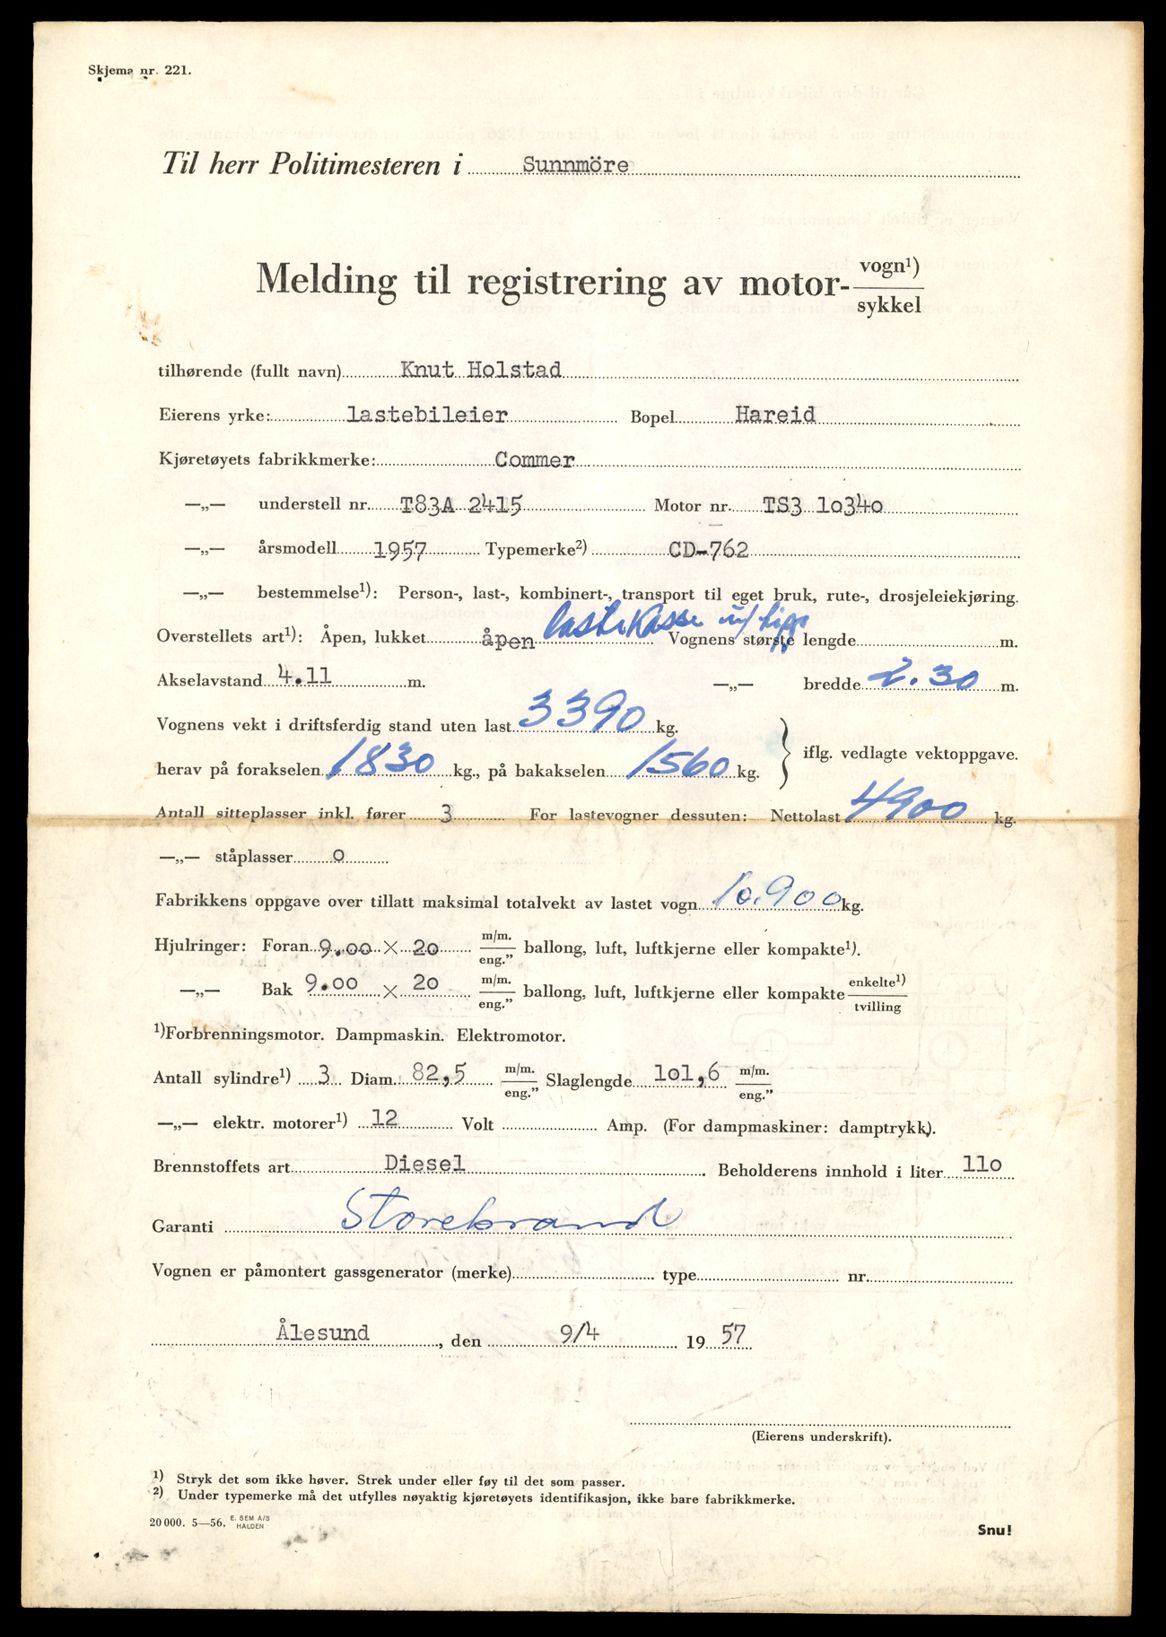 Skjema nr. 221.
Til herr Politimesteren i Sunnmöre
Melding til registrering av motor- vogn¹) sykkel
tilhørende (fullt navn) Knut Holstad
Eierens yrke: lastebileier Bopel Hareid
Kjøretøyets fabrikkmerke: Commer
—„— understell nr. T83A 2415 Motor nr. TS3 10340
—„— årsmodell 1957 Typemerke²) CD-762
—„— bestemmelse¹): Person-, last-, kombinert-, transport til eget bruk, rute-, drosjeleiekjøring.
Overstellets art¹): Åpen, lukket åpen lastekasse m/ tipp Vognens største lengde m.
Akselavstand 4.11 m. —„— bredde 2.30 m.
Vognens vekt i driftsferdig stand uten last 3390 kg.
herav på forakselen 1830 kg., på bakakselen 1560 kg. } iflg. vedlagte vektoppgave.
Antall sitteplasser inkl. fører 3 For lastevogner dessuten: Nettolast 4900 kg.
—„— ståplasser 0
Fabrikkens oppgave over tillatt maksimal totalvekt av lastet vogn 10.900 kg.
Hjulringer: Foran 9.00 × 20 m/m. eng.” ballong, luft, luftkjerne eller kompakte¹).
—„— Bak 9.00 × 20 m/m. eng.” ballong, luft, luftkjerne eller kompakte enkelte¹) tvilling
¹)Forbrenningsmotor. Dampmaskin. Elektromotor.
Antall sylindre¹) 3 Diam. 82,5 m/m. eng.” Slaglengde 101,6 m/m. eng.”
—„— elektr. motorer¹) 12 Volt Amp. (For dampmaskiner: damptrykk).
Brennstoffets art Diesel Beholderens innhold i liter 110
Garanti Storebrand
Vognen er påmontert gassgenerator (merke) type nr.
Ålesund, den 9/4 1957
(Eierens underskrift).
¹) Stryk det som ikke høver. Strek under eller føy til det som passer.
²) Under typemerke må det utfylles nøyaktig kjøretøyets identifikasjon, ikke bare fabrikkmerke.
20 000. 5—56. E. SEM A/S HALDEN
Snu!